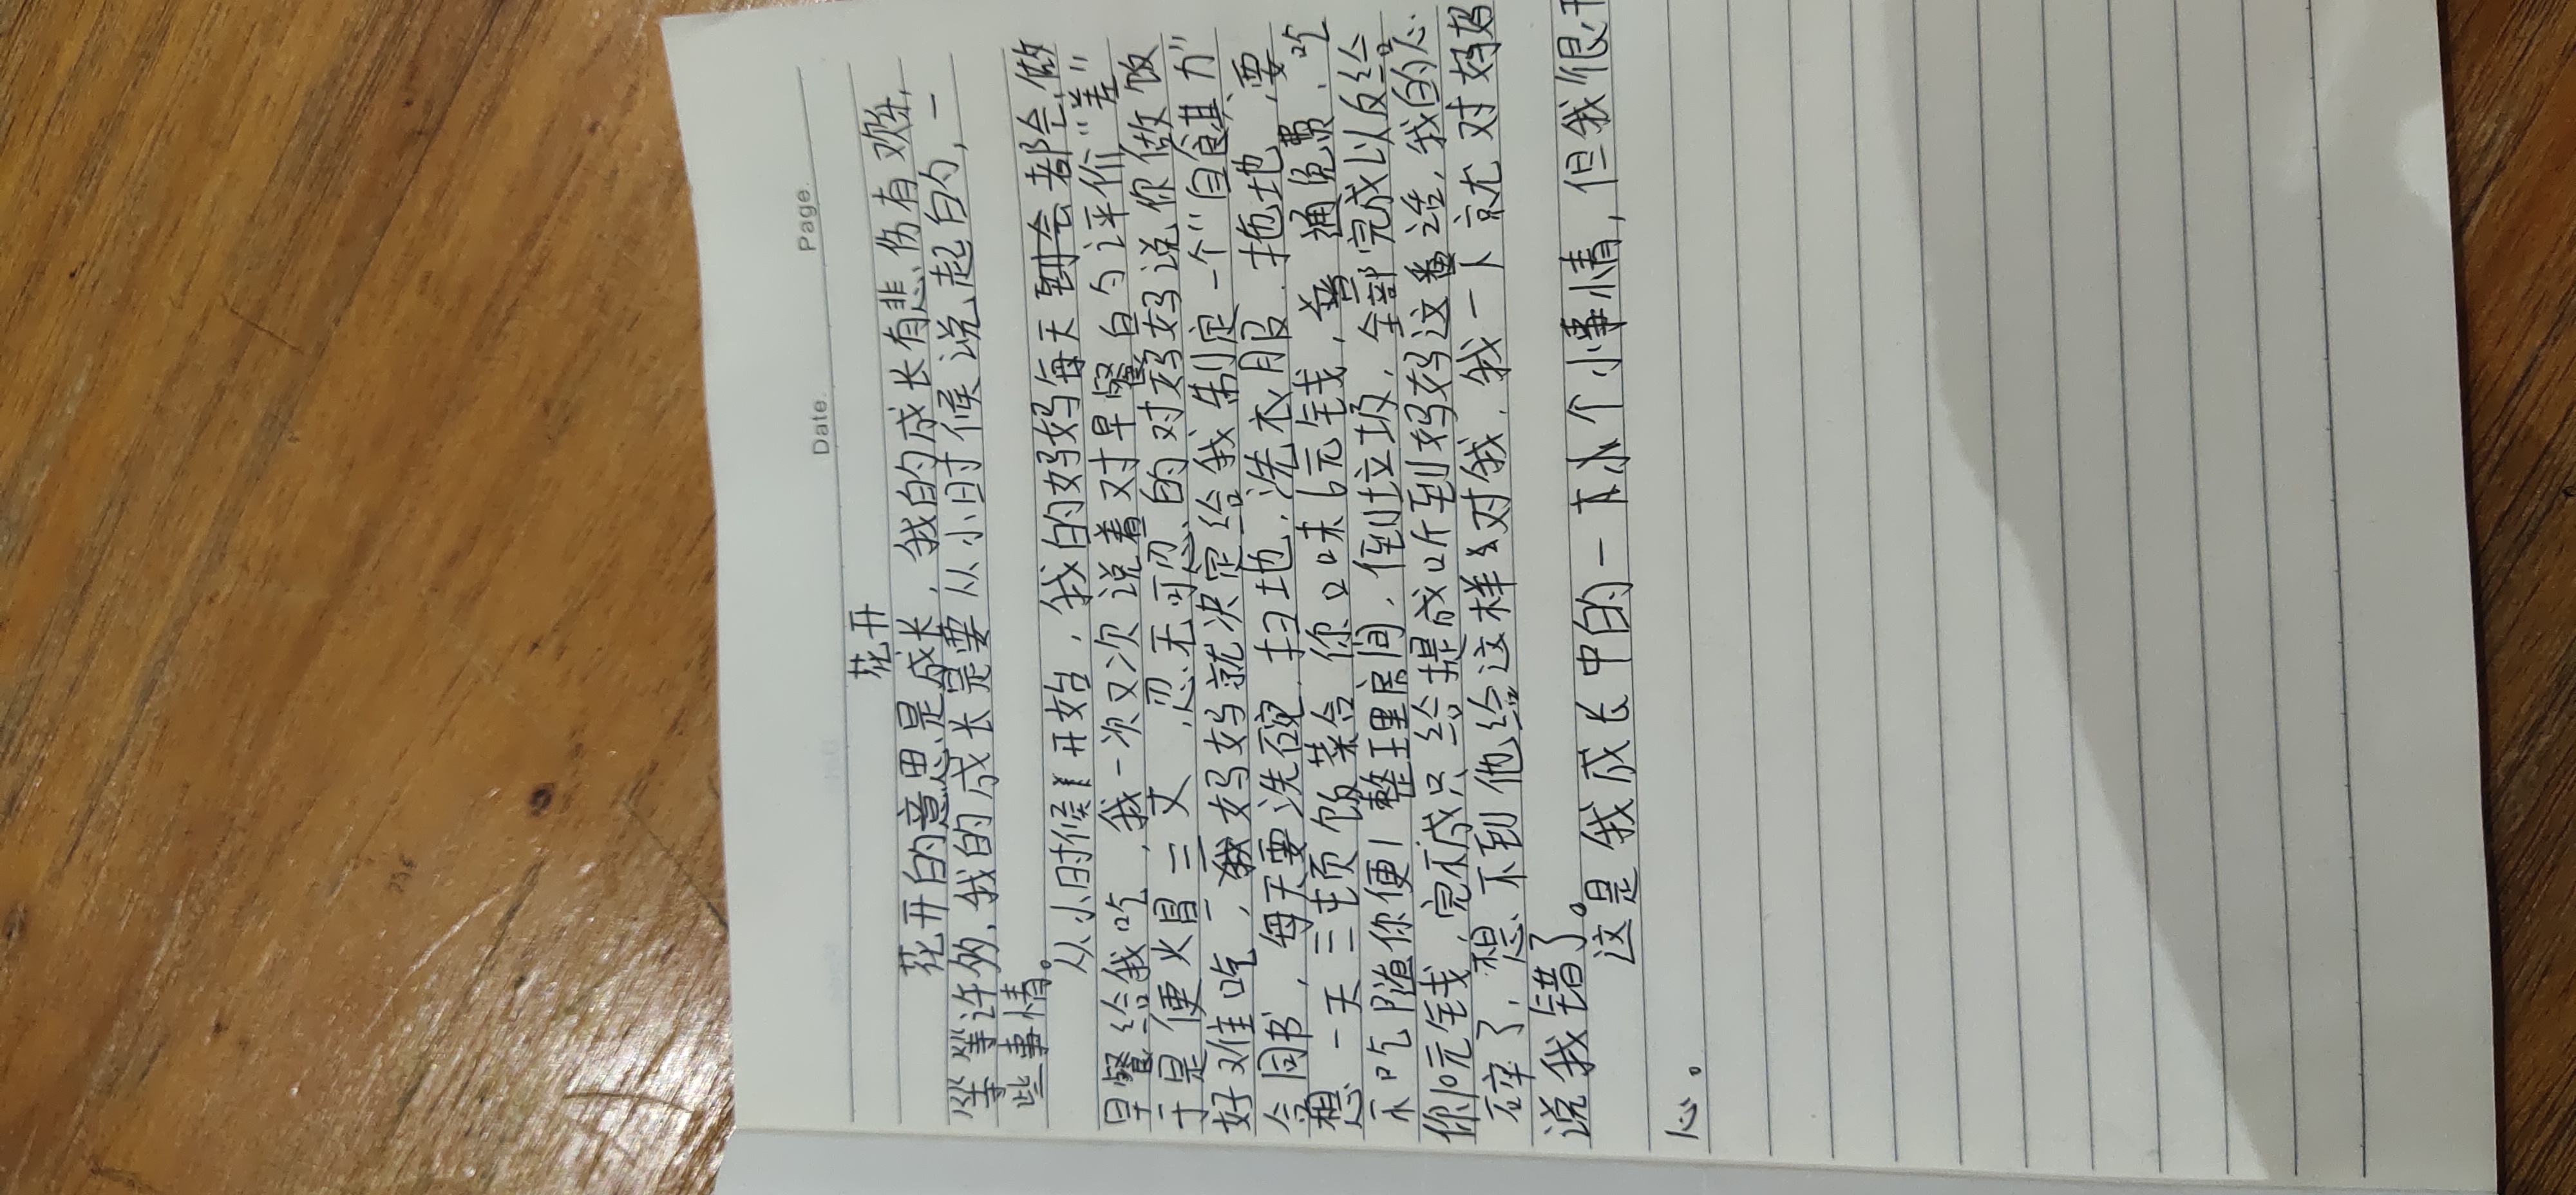 Date.          Page.
花开
花开的意思是成长，我的成长有悲伤有欢乐，
等等许多，我的成长是要从小时候说起的，一
些事情。
从小时候开始，我的妈妈每天都会做
早餐给我吃，我一次又次说着对早餐的评价“差”
于是便火冒三丈，忍无可忍的对妈妈说你做饭
好难吃，妈妈就决定给我制定一个“自食其力”
合同书，每天要洗碗、扫地、洗衣服、拖地、要
想一天三顿饭菜合你口味6元钱，普通免费，吃
不吃随你便，整理房间，倒垃圾，全部完成以反给
你10元钱，完不成只给提成听到妈妈这番话，我的心
碎了，想不到他给这样对我，我一人就对妈妈
说我错了。
这是我成长中的一个小事情，但我很开
心。